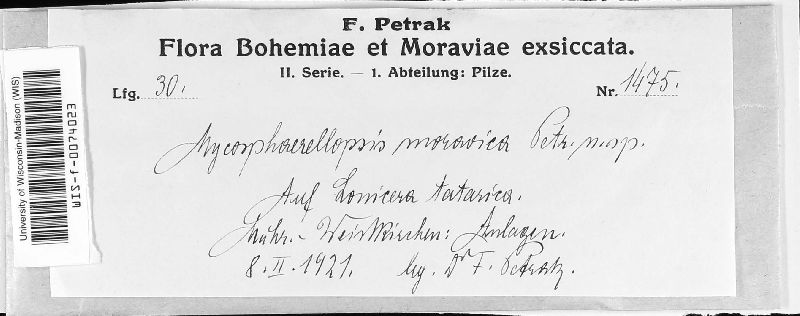 F. Petrak
Flora Bohemiae et Moraviae exsiccata.
II. Serie. — 1. Abteilung: Pilze.
Lfg. 30.
Nr. 1475.
Mycosphaerellopsis moravica Petr. n. sp.
Auf Lonicera tatarica.
Mähr.-Weisskirchen: Anlagen.
8. II. 1921. leg. Dr F. Petrak.
University of Wisconsin-Madison (WIS)
WIS-f-0074023